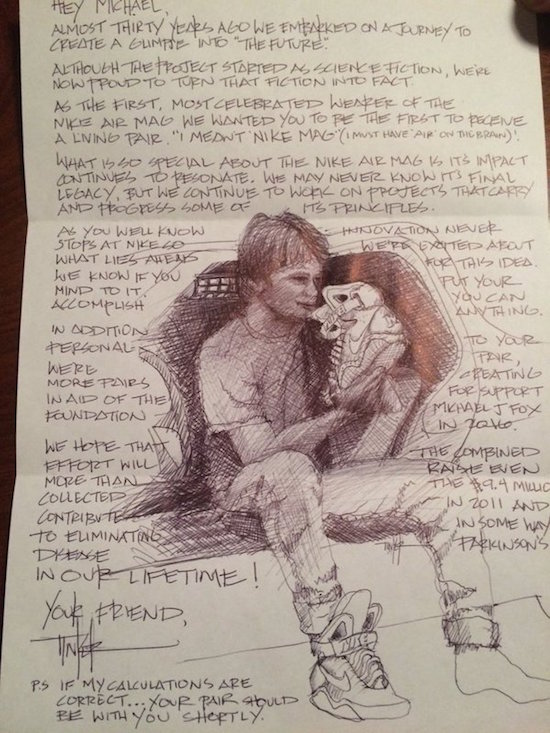 HEY MICHAEL,
ALMOST THIRTY YEARS AGO WE EMBARKED ON A JOURNEY TO
CREATE A GLIMPSE INTO "THE FUTURE".
ALTHOUGH THE PROJECT STARTED AS SCIENCE FICTION, WE'RE
NOW PROUD TO TURN THAT FICTION INTO FACT.
AS THE FIRST, MOST CELEBRATED WEARER OF THE
NIKE AIR MAG WE WANTED YOU TO BE THE FIRST TO RECEIVE
A LIVING PAIR. "I MEANT 'NIKE MAG' (I MUST HAVE 'AIR' ON THE BRAIN)".
WHAT IS SO SPECIAL ABOUT THE NIKE AIR MAG IS ITS IMPACT
CONTINUES TO RESONATE. WE MAY NEVER KNOW IT'S FINAL
LEGACY, BUT WE CONTINUE TO WORK ON PROJECTS THAT CARRY
AND PROGRESS SOME OF ITS PRINCIPLES.
AS YOU WELL KNOW INNOVATION NEVER
STOPS AT NIKE SO WE'RE EXCITED ABOUT
WHAT LIES AHEAD FOR THIS IDEA.
WE KNOW IF YOU PUT YOUR
MIND TO IT, YOU CAN
ACCOMPLISH ANYTHING.
IN ADDITION TO YOUR
PERSONAL PAIR,
WE'RE CREATING
MORE PAIRS FOR SUPPORT
IN AID OF THE MICHAEL J FOX
FOUNDATION IN 2016.
WE HOPE THAT THE COMBINED
EFFORT WILL RAISE EVEN
MORE THAN THE $9.4 MILLIO
COLLECTED IN 2011 AND
CONTRIBUTE IN SOME WAY
TO ELIMINATING PARKINSON'S
DISEASE
IN OUR LIFETIME!
YOUR FRIEND,
TINKER
P.S IF MY CALCULATIONS ARE
CORRECT... YOUR PAIR SHOULD
BE WITH YOU SHORTLY.